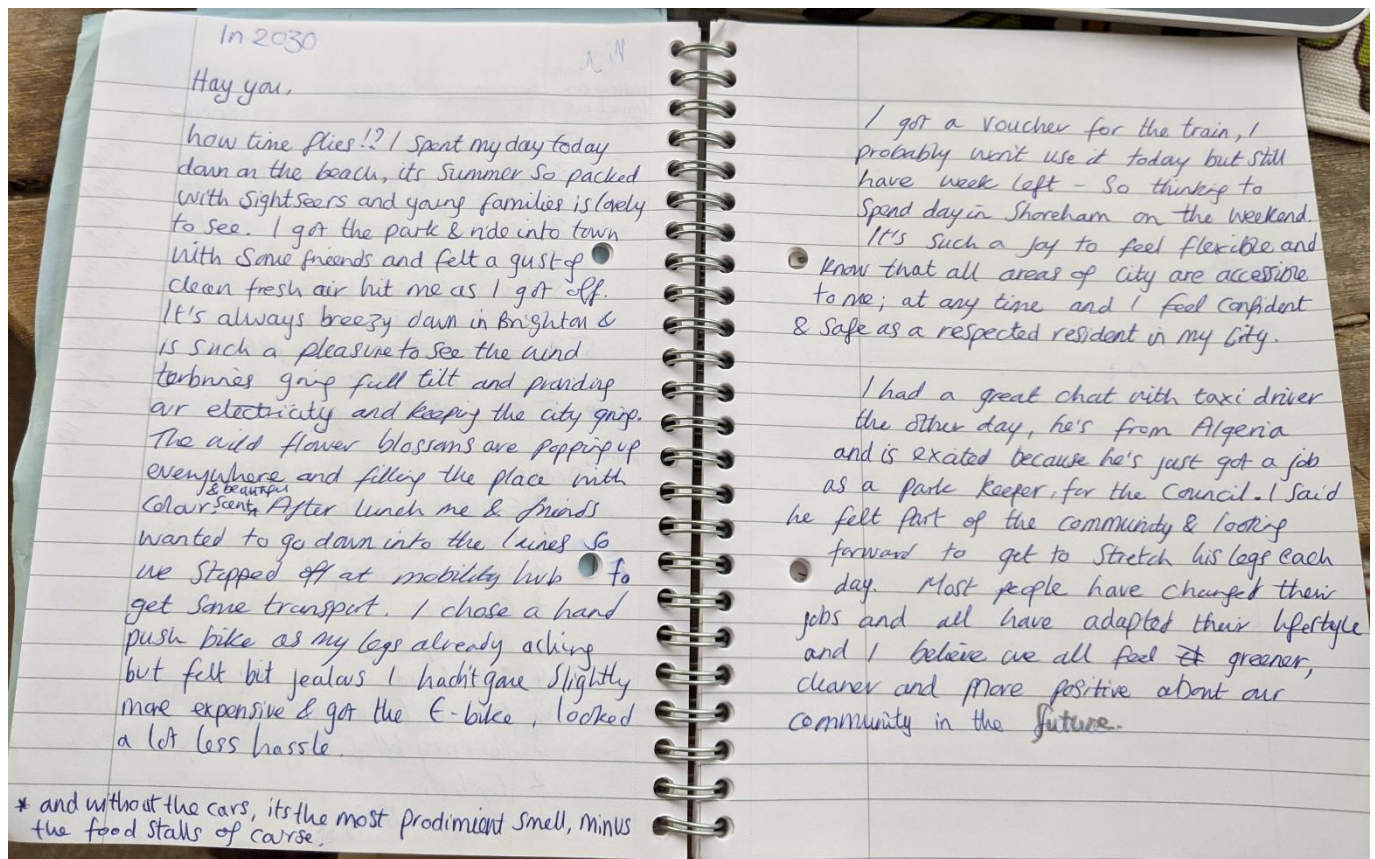 In 2030
Hay you,
how time flies!? I spent my day today
down on the beach, its summer so packed
with sightseers and young families is lovely
to see. I got the park & ride into town
with some friends and felt a gust of
clean fresh air hit me as I got off.
It's always breezy down in Brighton &
is such a pleasure to see the wind
terbnnies going full tilt and providing
our electricity and keeping the city going.
The wild flower blossoms are popping up
everywhere and filling the place with
& beautiful
colour scent* After lunch me & friends
wanted to go down into the laines so
we stopped off at mobility hub to
get some transport. I chose a hand
push bike as my legs already aching
but felt bit jealous I hadn't gone slightly
more expensive & got the E-bike, looked
a lot less hassle.
* and without the cars, its the most prodimient smell, minus
the food stalls of course.
I got a voucher for the train, I
probably won't use it today but still
have week left - so thinking to
spend day in Shoreham on the weekend.
It's such a joy to feel flexible and
know that all areas of city are accessible
to me; at any time and I feel confident
& safe as a respected resident in my city.
I had a great chat with taxi driver
the other day, he's from Algeria
and is exated because he's just got a job
as a park keeper, for the council. I said
he felt part of the community & looking
forward to get to stretch his legs each
day. Most people have changed their
jobs and all have adapted their lifestyle
and I believe we all feel greener,
cleaner and more positive about our
community in the future.